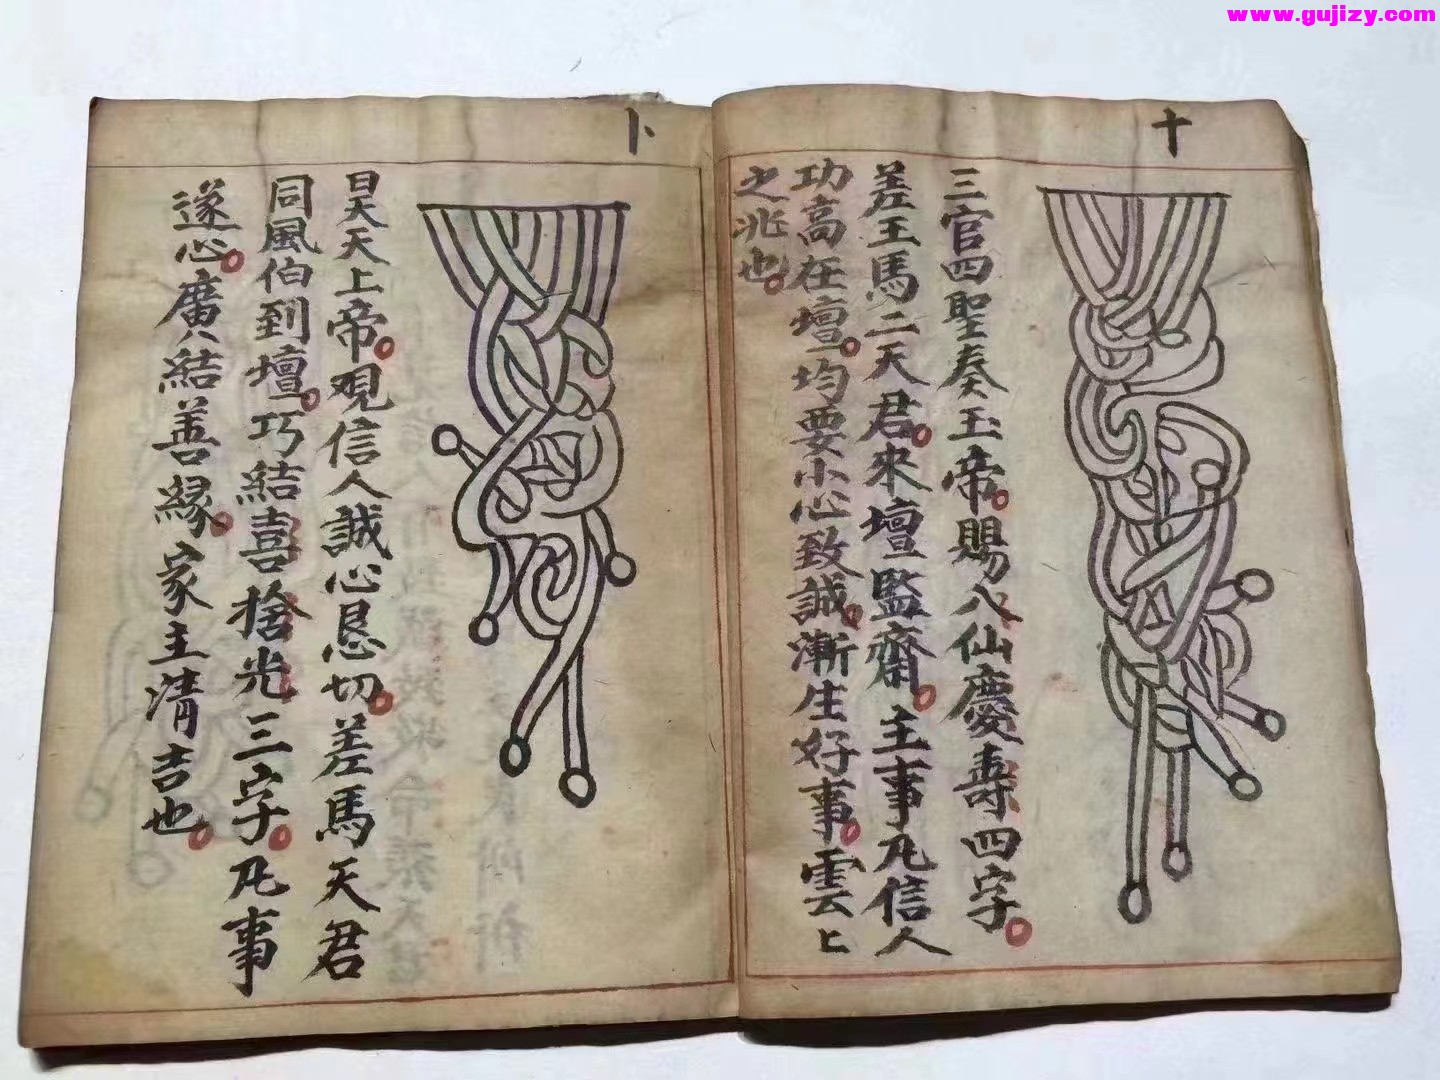 www.gujizy.com
十
三官四聖奏玉帝。賜八仙慶壽四字。
差王馬二天君。來壇監齋。主事凡信人
功高在壇。均要小心致誠。漸生好事。雲上
之兆也。
卜
昊天上帝。观信人誠心恳切。差馬天君
同風伯到壇。巧結喜捨光三字。凡事
遂心。廣結善緣。家主清吉也。